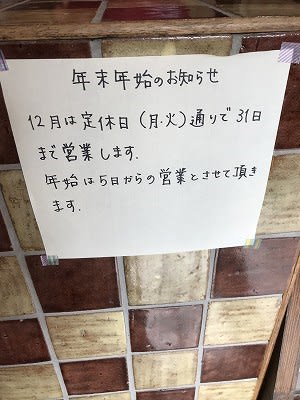 年末年始のお知らせ
12月は定休日(月.火)通りで31日
まで営業します.
年始は5日からの営業とさせて頂き
ます.